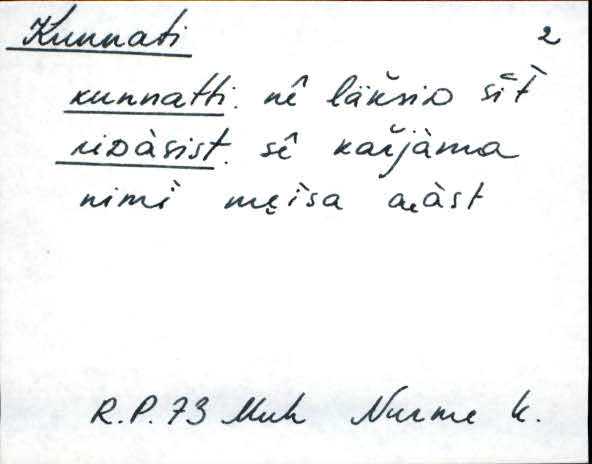 Kunnati 2
kunnatti. nê läksiᴅ sĭt̀
riᴅàsist. sê kaŕjàma
nimì mę̀isa aᴇàst
R.P.73 Muh Nurme k.